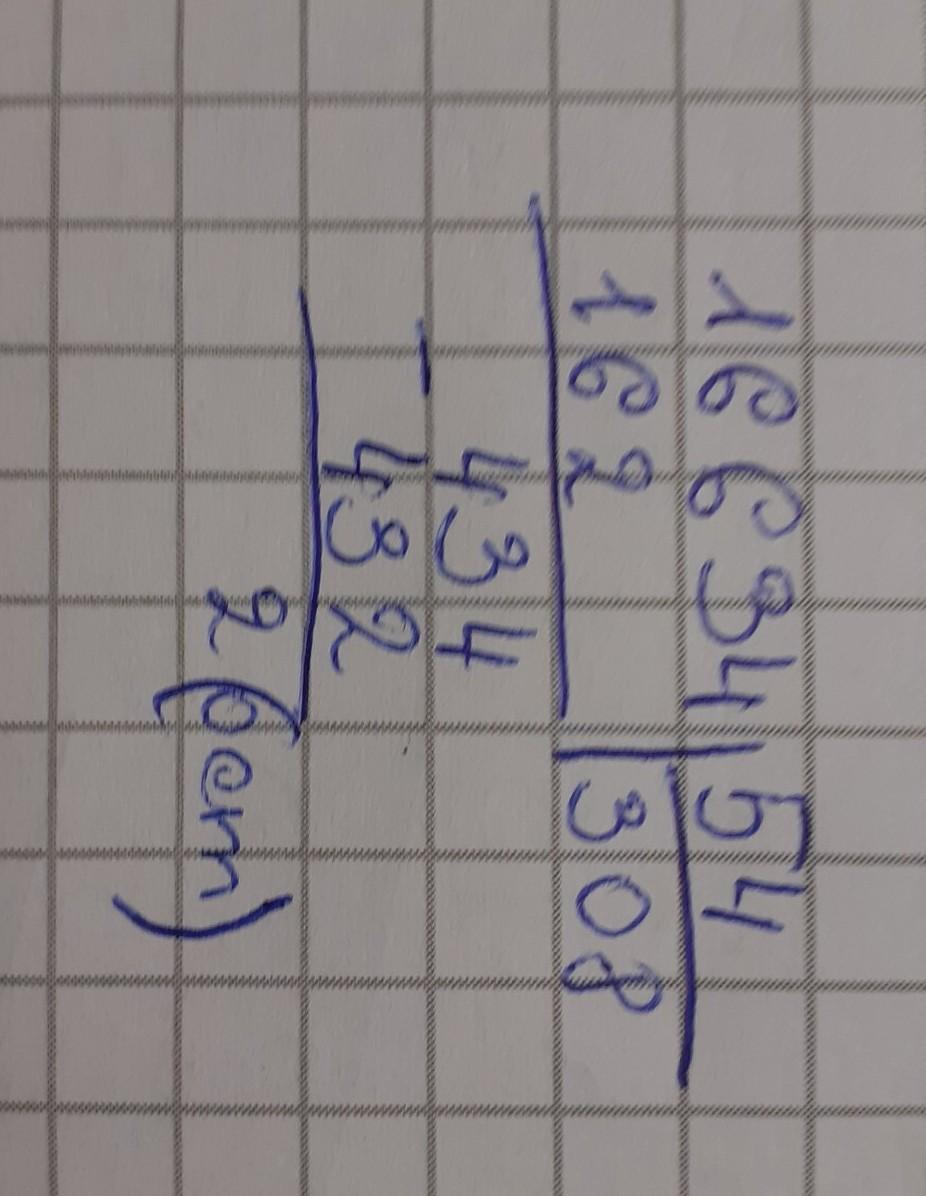 16634 | 54
162 | 308
434
- 432
2 (ост)